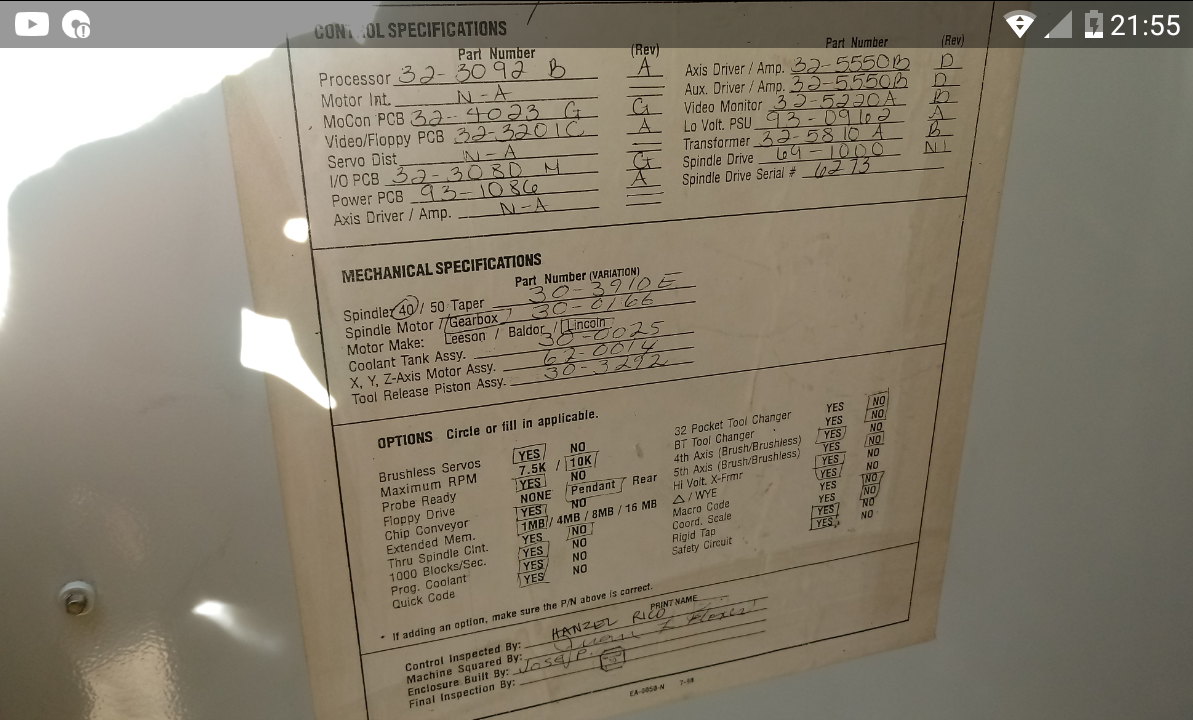 21:55
CONTROL SPECIFICATIONS
Part Number (Rev)
Processor 32-3092 B A
Motor Int. N-A
MoCon PCB 32-4023 G G
Video/Floppy PCB 32-3201C A
Servo Dist N-A
I/O PCB 32-3080 M G
Power PCB 93-1086 A
Axis Driver / Amp. N-A
Part Number (Rev)
Axis Driver / Amp. 32-5550B D
Aux. Driver / Amp. 32-5550B D
Video Monitor 32-5220A B
Lo Volt. PSU 93-0910 A
Transformer 32-5810 A B
Spindle Drive 69-1000
Spindle Drive Serial # 6273
MECHANICAL SPECIFICATIONS
Part Number (VARIATION)
Spindle: 40 / 50 Taper 30-3910E
Spindle Motor / Gearbox 30-0166
Motor Make: Leeson / Baldor / Lincoln
Coolant Tank Assy. 30-0025
X, Y, Z-Axis Motor Assy. 62-0014
Tool Release Piston Assy. 30-3292
OPTIONS Circle or fill in applicable.
Brushless Servos YES NO
Maximum RPM 7.5K / 10K
Probe Ready YES NO
Floppy Drive NONE Pendant Rear
Chip Conveyor YES NO
Extended Mem. 1MB / 4MB / 8MB / 16 MB
Thru Spindle Clnt. YES NO
1000 Blocks/Sec. YES NO
Prog. Coolant YES NO
Quick Code YES NO
32 Pocket Tool Changer YES NO
BT Tool Changer YES NO
4th Axis (Brush/Brushless) YES NO
5th Axis (Brush/Brushless) YES NO
Hi Volt. X-Frmr YES NO
△ / WYE YES NO
Macro Code YES NO
Coord. Scale YES NO
Rigid Tap YES NO
Safety Circuit YES NO
* If adding an option, make sure the P/N above is correct.
PRINT NAME
Control Inspected By: HANZEL RICO
Machine Squared By: Juan
Enclosure Built By: Jose P.
Final Inspection By:
EA-0059-N 7-98